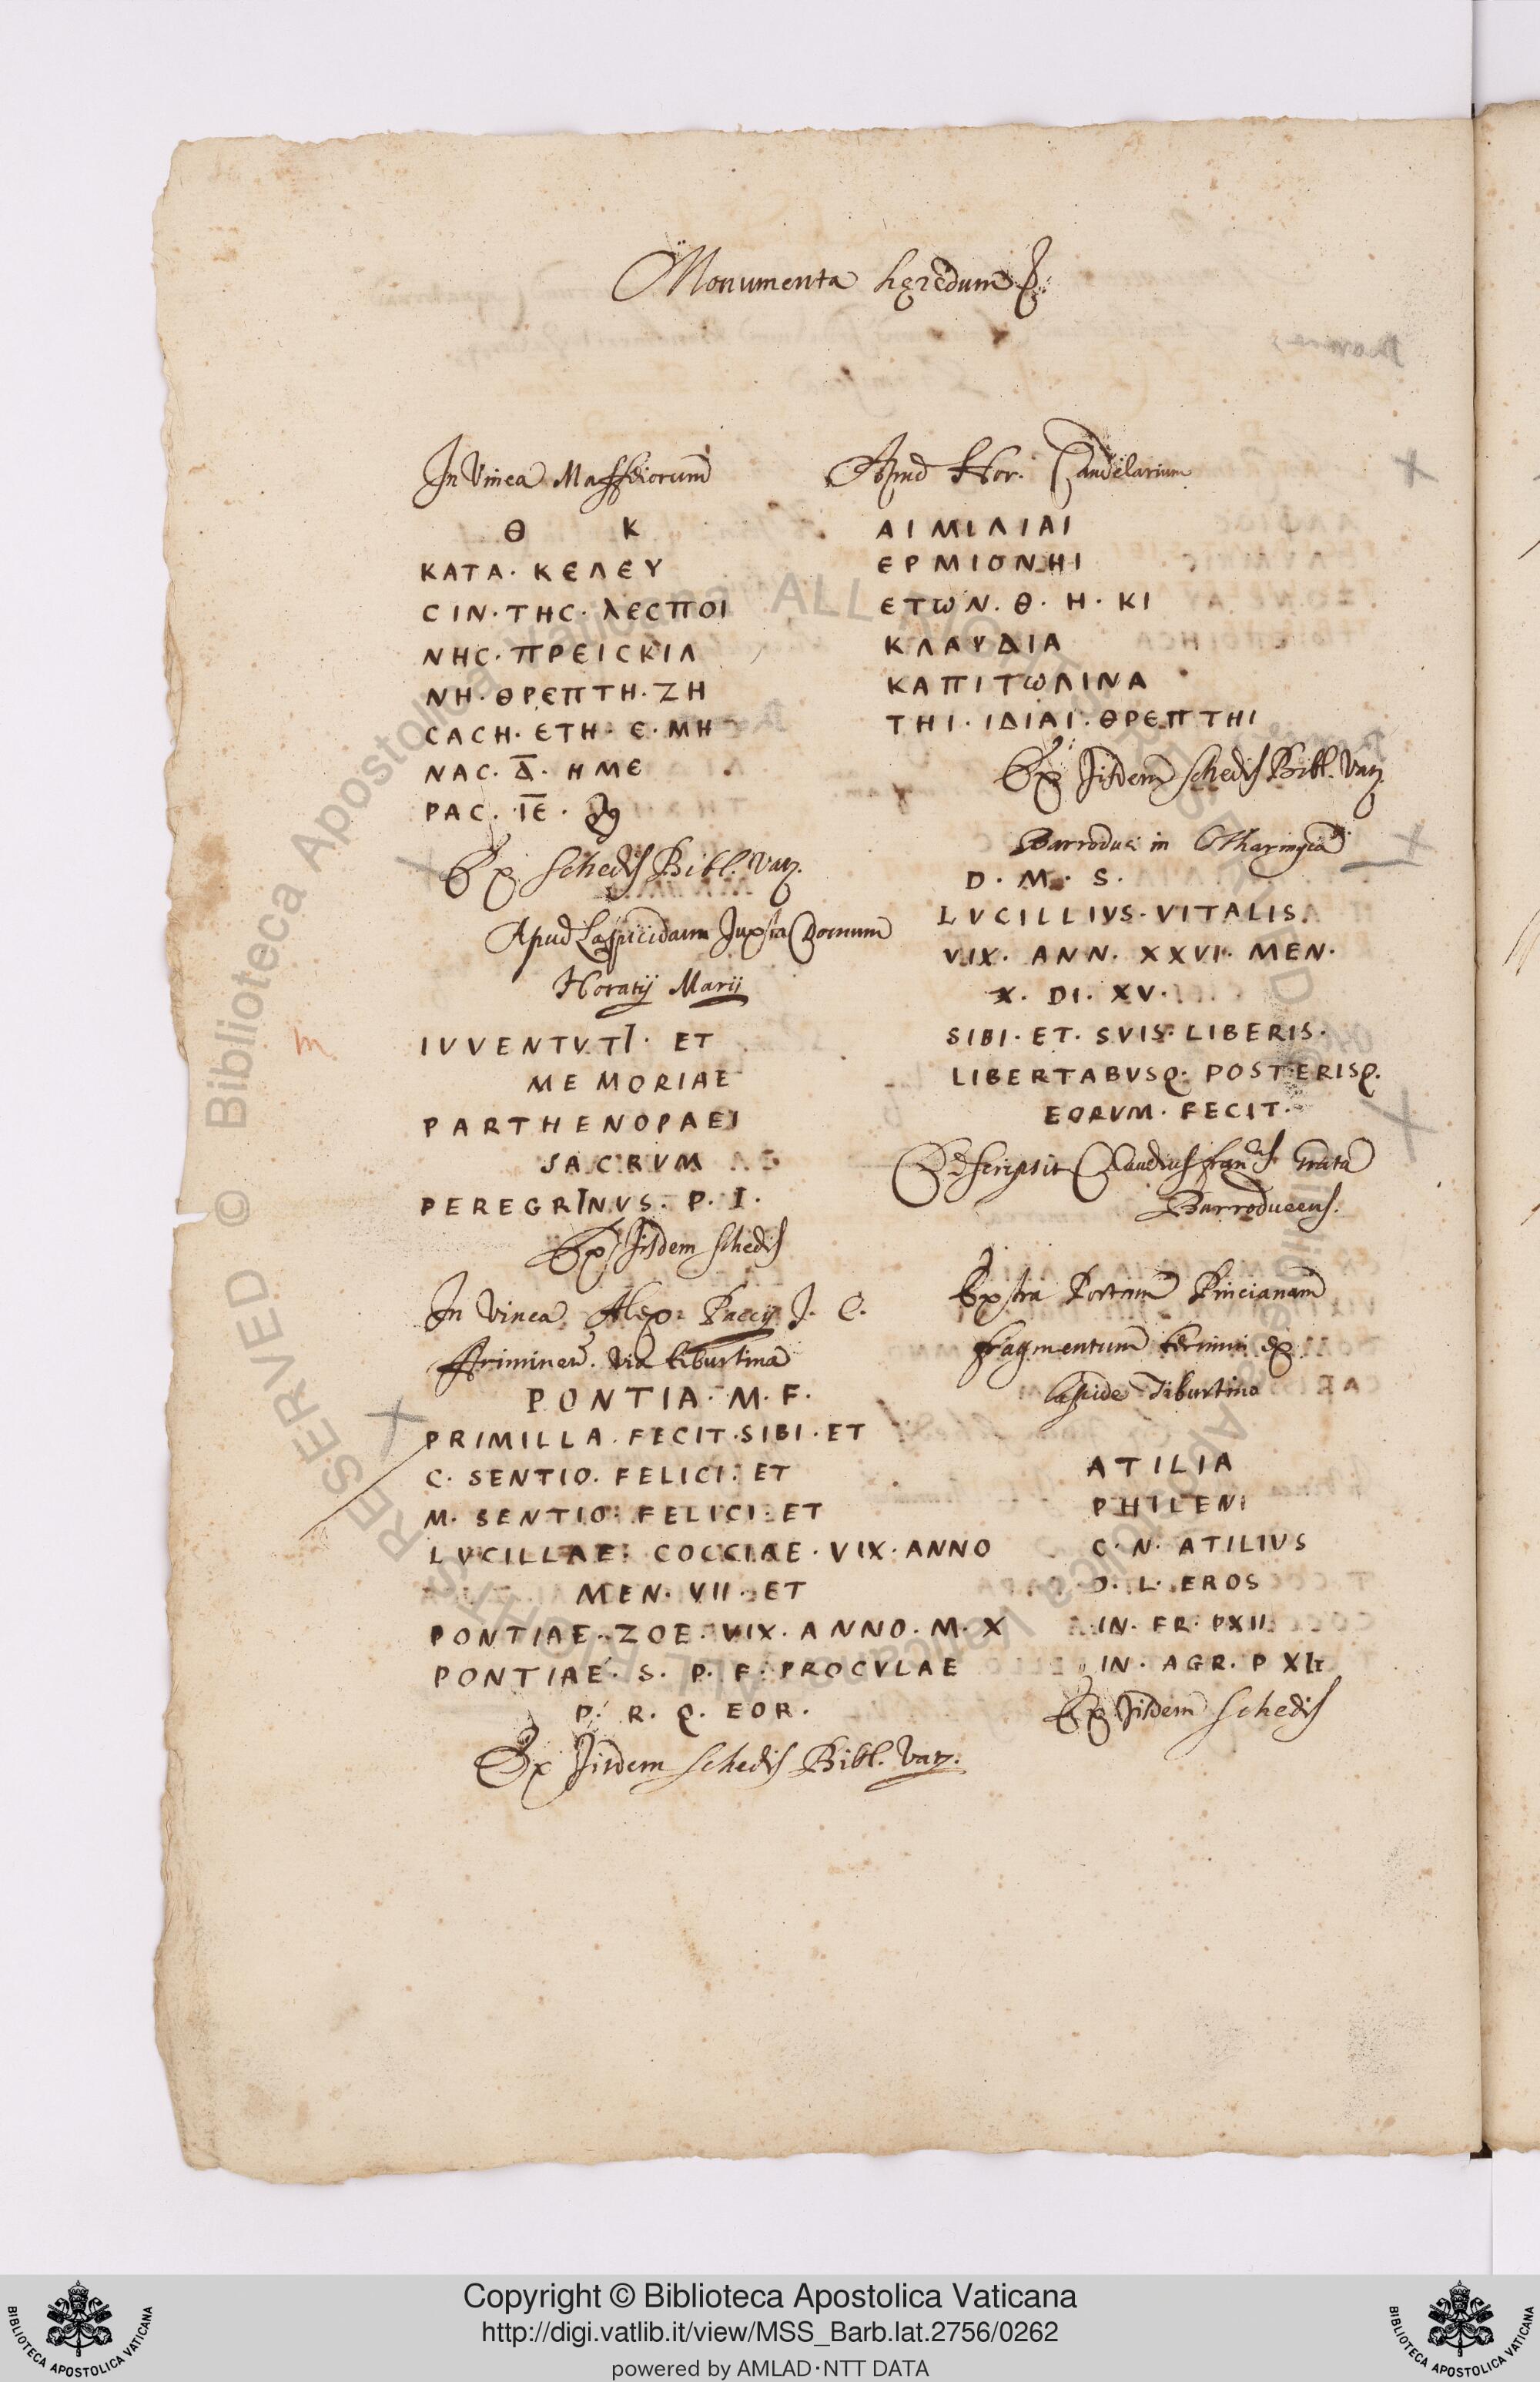 Monumenta hęredum
In Vinea Maffeiorum
Θ K
ΚΑΤΑ· ΚЄΛЄΥ
CΙΝ·ΤΗC· ΛЄCΠΟΙ
ΝΗC·ΠΡЄΙCΚΙΛ
ΝΗ·ΘΡЄΠΤΗ·ΖΗ
CΑCΗ·ЄΤΗ·Є·ΜΗ
ΝΑC·Δ̅·ΗΜЄ
ΡΑC·Ι̅Є̅·
Ex Schedis Bibl. Vat.
Apud Lapicidam Juxta Domum
Horatij Marii
IVVENTVTI· ET
MEMORIAE
PARTHENOPAEI
SACRVM
PEREGRINVS. P. I.
Ex Jisdem schedis
In Vinea Alex. Paccij J. C.
Ariminen. Via tiburtina
PONTIA· M· F·
PRIMILLA·FECIT·SIBI·ET
C· SENTIO· FELICI· ET
M· SENTIO· FELICI· ET
LVCILLAE· COCCIAE·VIX·ANNO
MEN· VII· ET
PONTIAE·ZOE·VIX·ANNO·M·X
PONTIAE·S·P·F·PROCVLAE
P· R· Q· EOR·
Ex Jisdem Schedis Bibl. Vat.
Apud Hor. Candelarium
ΑΙΜΙΛΙΑΙ
ЄΡΜΙΟΝΗΙ
ЄΤωΝ·Θ·Η·ΚΙ
ΚΛΑΥΔΙΑ
ΚΑΠΙΤωΛΙΝΑ
ΤΗΙ·ΙΔΙΑΙ·ΘΡЄΠΤΗΙ
Ex Jisdem schedis Bibl. Vat.
Barroduci in Otharingia
D· M· S·
LVCILLIVS·VITALIS·
VIX· ANN· XXVI· MEN·
X· DI· XV·
SIBI·ET·SVIS·LIBERIS·
LIBERTABVSQ·POSTERISQ·
EORVM·FECIT·
Descripsit Claudius Barroduceus.
Extra Portam Pincianam
fragmentum termini ex
lapide Tiburtino
ATILIA
PHILENI
C·N·ATILIVS
Ɔ·L·EROS
IN·FR·PXII
IN·AGR·P
Ex Jisdem schedis
Copyright © Biblioteca Apostolica Vaticana
http://digi.vatlib.it/view/MSS_Barb.lat.2756/0262
powered by AMLAD·NTT DATA